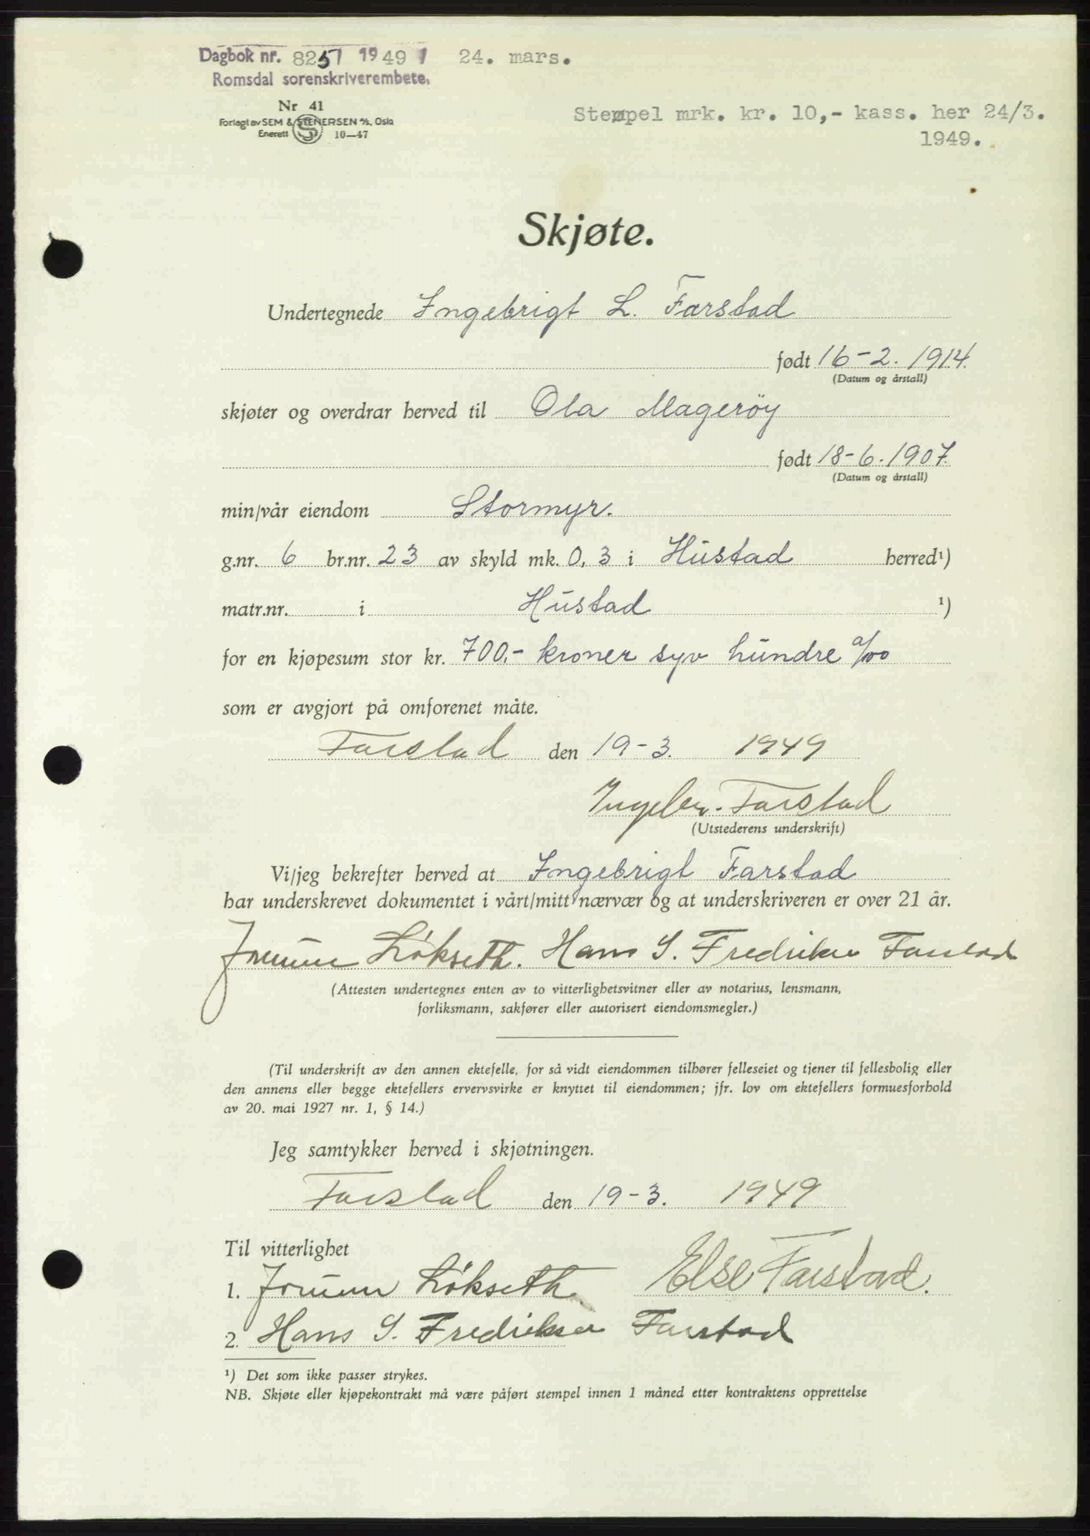 Dagbok nr. 825/ 1949
24. mars.
Romsdal sorenskriverembete.
Nr 41
Forlagt av SEM & STENERSEN A/S, Oslo
Enerett S 10—47
Stempel mrk. kr. 10,- kass. her 24/3.
1949.
Skjøte.
Undertegnede Ingebrigt L. Farstad
født 16-2. 1914.
(Datum og årstall)
skjøter og overdrar herved til Ola Magerøy
født 18-6. 1907.
(Datum og årstall)
min/vår eiendom Stormyr.
g.nr. 6 br.nr. 23 av skyld mk. 0,3 i Hustad herred¹)
matr.nr. i Hustad ¹)
for en kjøpesum stor kr. 700,- kroner syv hundre 0/00
som er avgjort på omforenet måte.
Farstad den 19-3. 1949
Ingebr. Farstad
(Utstederens underskrift)
Vi/jeg bekrefter herved at Ingebrigt Farstad
har underskrevet dokumentet i vårt/mitt nærvær og at underskriveren er over 21 år.
Jorunn Løkseth. Hans S. Fredriksen Farstad
(Attesten undertegnes enten av to vitterlighetsvitner eller av notarius, lensmann,
forliksmann, sakfører eller autorisert eiendomsmegler.)
(Til underskrift av den annen ektefelle, for så vidt eiendommen tilhører felleseiet og tjener til fellesbolig eller
den annens eller begge ektefellers ervervsvirke er knyttet til eiendommen; jfr. lov om ektefellers formuesforhold
av 20. mai 1927 nr. 1, § 14.)
Jeg samtykker herved i skjøtningen.
Farstad den 19-3. 1949
Til vitterlighet
1. Jorunn Løkseth. Else Farstad.
2. Hans S. Fredriksen Farstad
¹) Det som ikke passer strykes.
NB. Skjøte eller kjøpekontrakt må være påført stempel innen 1 måned etter kontraktens opprettelse